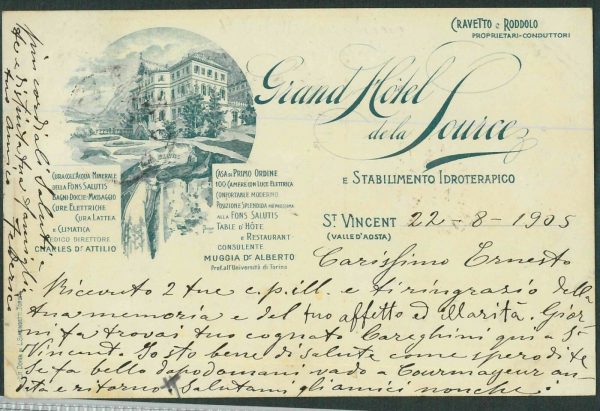 CRAVETTO E RODDOLO
PROPRIETARI-CONDUTTORI
Grand Hôtel
de la Source
E STABILIMENTO IDROTERAPICO
CURA COLL'ACQUA MINERALE
DELLA FONS SALUTIS
BAGNI-DOCCIE-MASSAGGIO
CURE ELETTRICHE
CURA LATTEA
E CLIMATICA
MEDICO DIRETTORE
CHARLES Dr ATTILIO
CASA DI PRIMO ORDINE
100 CAMERE CON LUCE ELETTRICA
CONFORTABLE MODERNO
POSIZIONE SPLENDIDA
ALLA FONS SALUTIS
TABLE D'HÔTE
E RESTAURANT
CONSULENTE
MUGGIA Dr ALBERTO
Prof. all'Università di Torino
St VINCENT 22-8-1905
(VALLE D'AOSTA)
Carissimo Ernesto
Ricevuto 2 tue c.p. ill. e ti ringrazio della
tua memoria e del tuo affetto ed ilarità. Gior-
ni fa trovai tuo cognato Careghini qui a St
Vincent. Io sto bene di salute come spero di te
Se fa bello dopodomani vado a Courmayeur an-
data e ritorno. Salutami gli amici nonchè
tua famiglia
Miei cordiali saluti
tuo amico